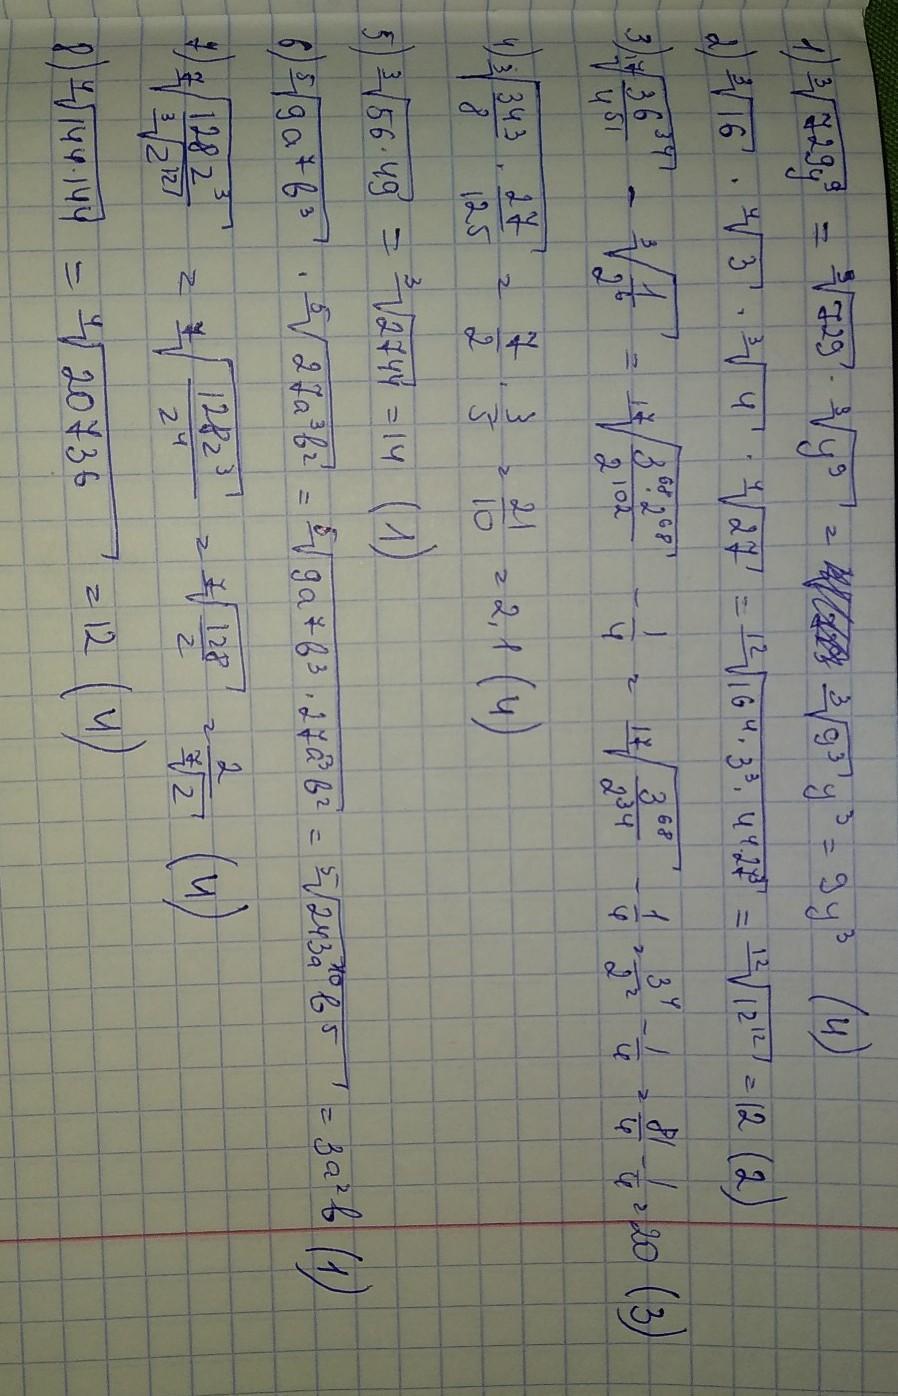 1) ∛(729y⁹) = ∛729 · ∛y⁹ = ∛(9³) y³ = 9y³ (4)
2) ∛16 · ⁴√3 · ∛4 · ⁴√27 = ¹²√(16⁴ · 3³ · 4⁴ · 27³) = ¹²√(12¹²) = 12 (2)
3) ¹⁷√(36³⁴/4⁵¹) - ∛(1/2⁶) = ¹⁷√(3⁶⁸ · 2⁶⁸/2¹⁰²) - 1/4 = ¹⁷√(3⁶⁸/2³⁴) - 1/4 = 3⁴/2² - 1/4 = 81/4 - 1/4 = 20 (3)
4) ∛(343/8 · 27/125) = 7/2 · 3/5 = 21/10 = 2,1 (4)
5) ∛(56 · 49) = ∛2744 = 14 (1)
6) ⁵√(9a⁷b³) · ⁵√(27a³b²) = ⁵√(9a⁷b³ · 27a³b²) = ⁵√(243a¹⁰b⁵) = 3a²b (1)
7) ⁷√(128z³/∛(z¹²)) = ⁷√(128z³/z⁴) = ⁷√(128/z) = 2/⁷√z (4)
8) ⁴√(144·144) = ⁴√20736 = 12 (4)